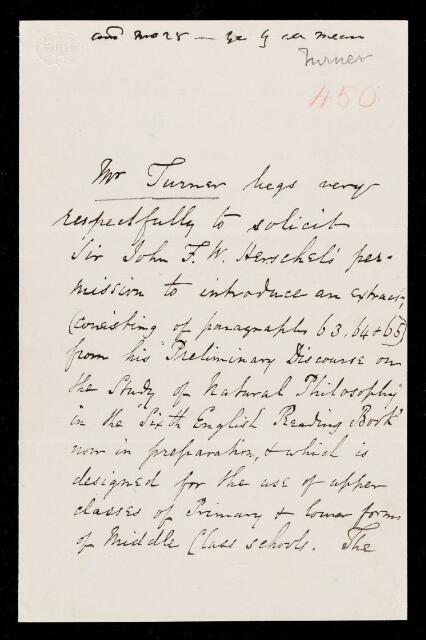 Turner
450
Mr Turner begs very
respectfully to solicit
Sir John F. W. Herschel's per-
mission to introduce an extract,
(consisting of paragraphs 63, 64 & 65)
from his "Preliminary Discourse on
the Study of Natural Philosophy"
in the "Sixth English Reading Book"
now in preparation, & which is
designed for the use of upper
classes of Primary & lower forms
of Middle Class schools. The